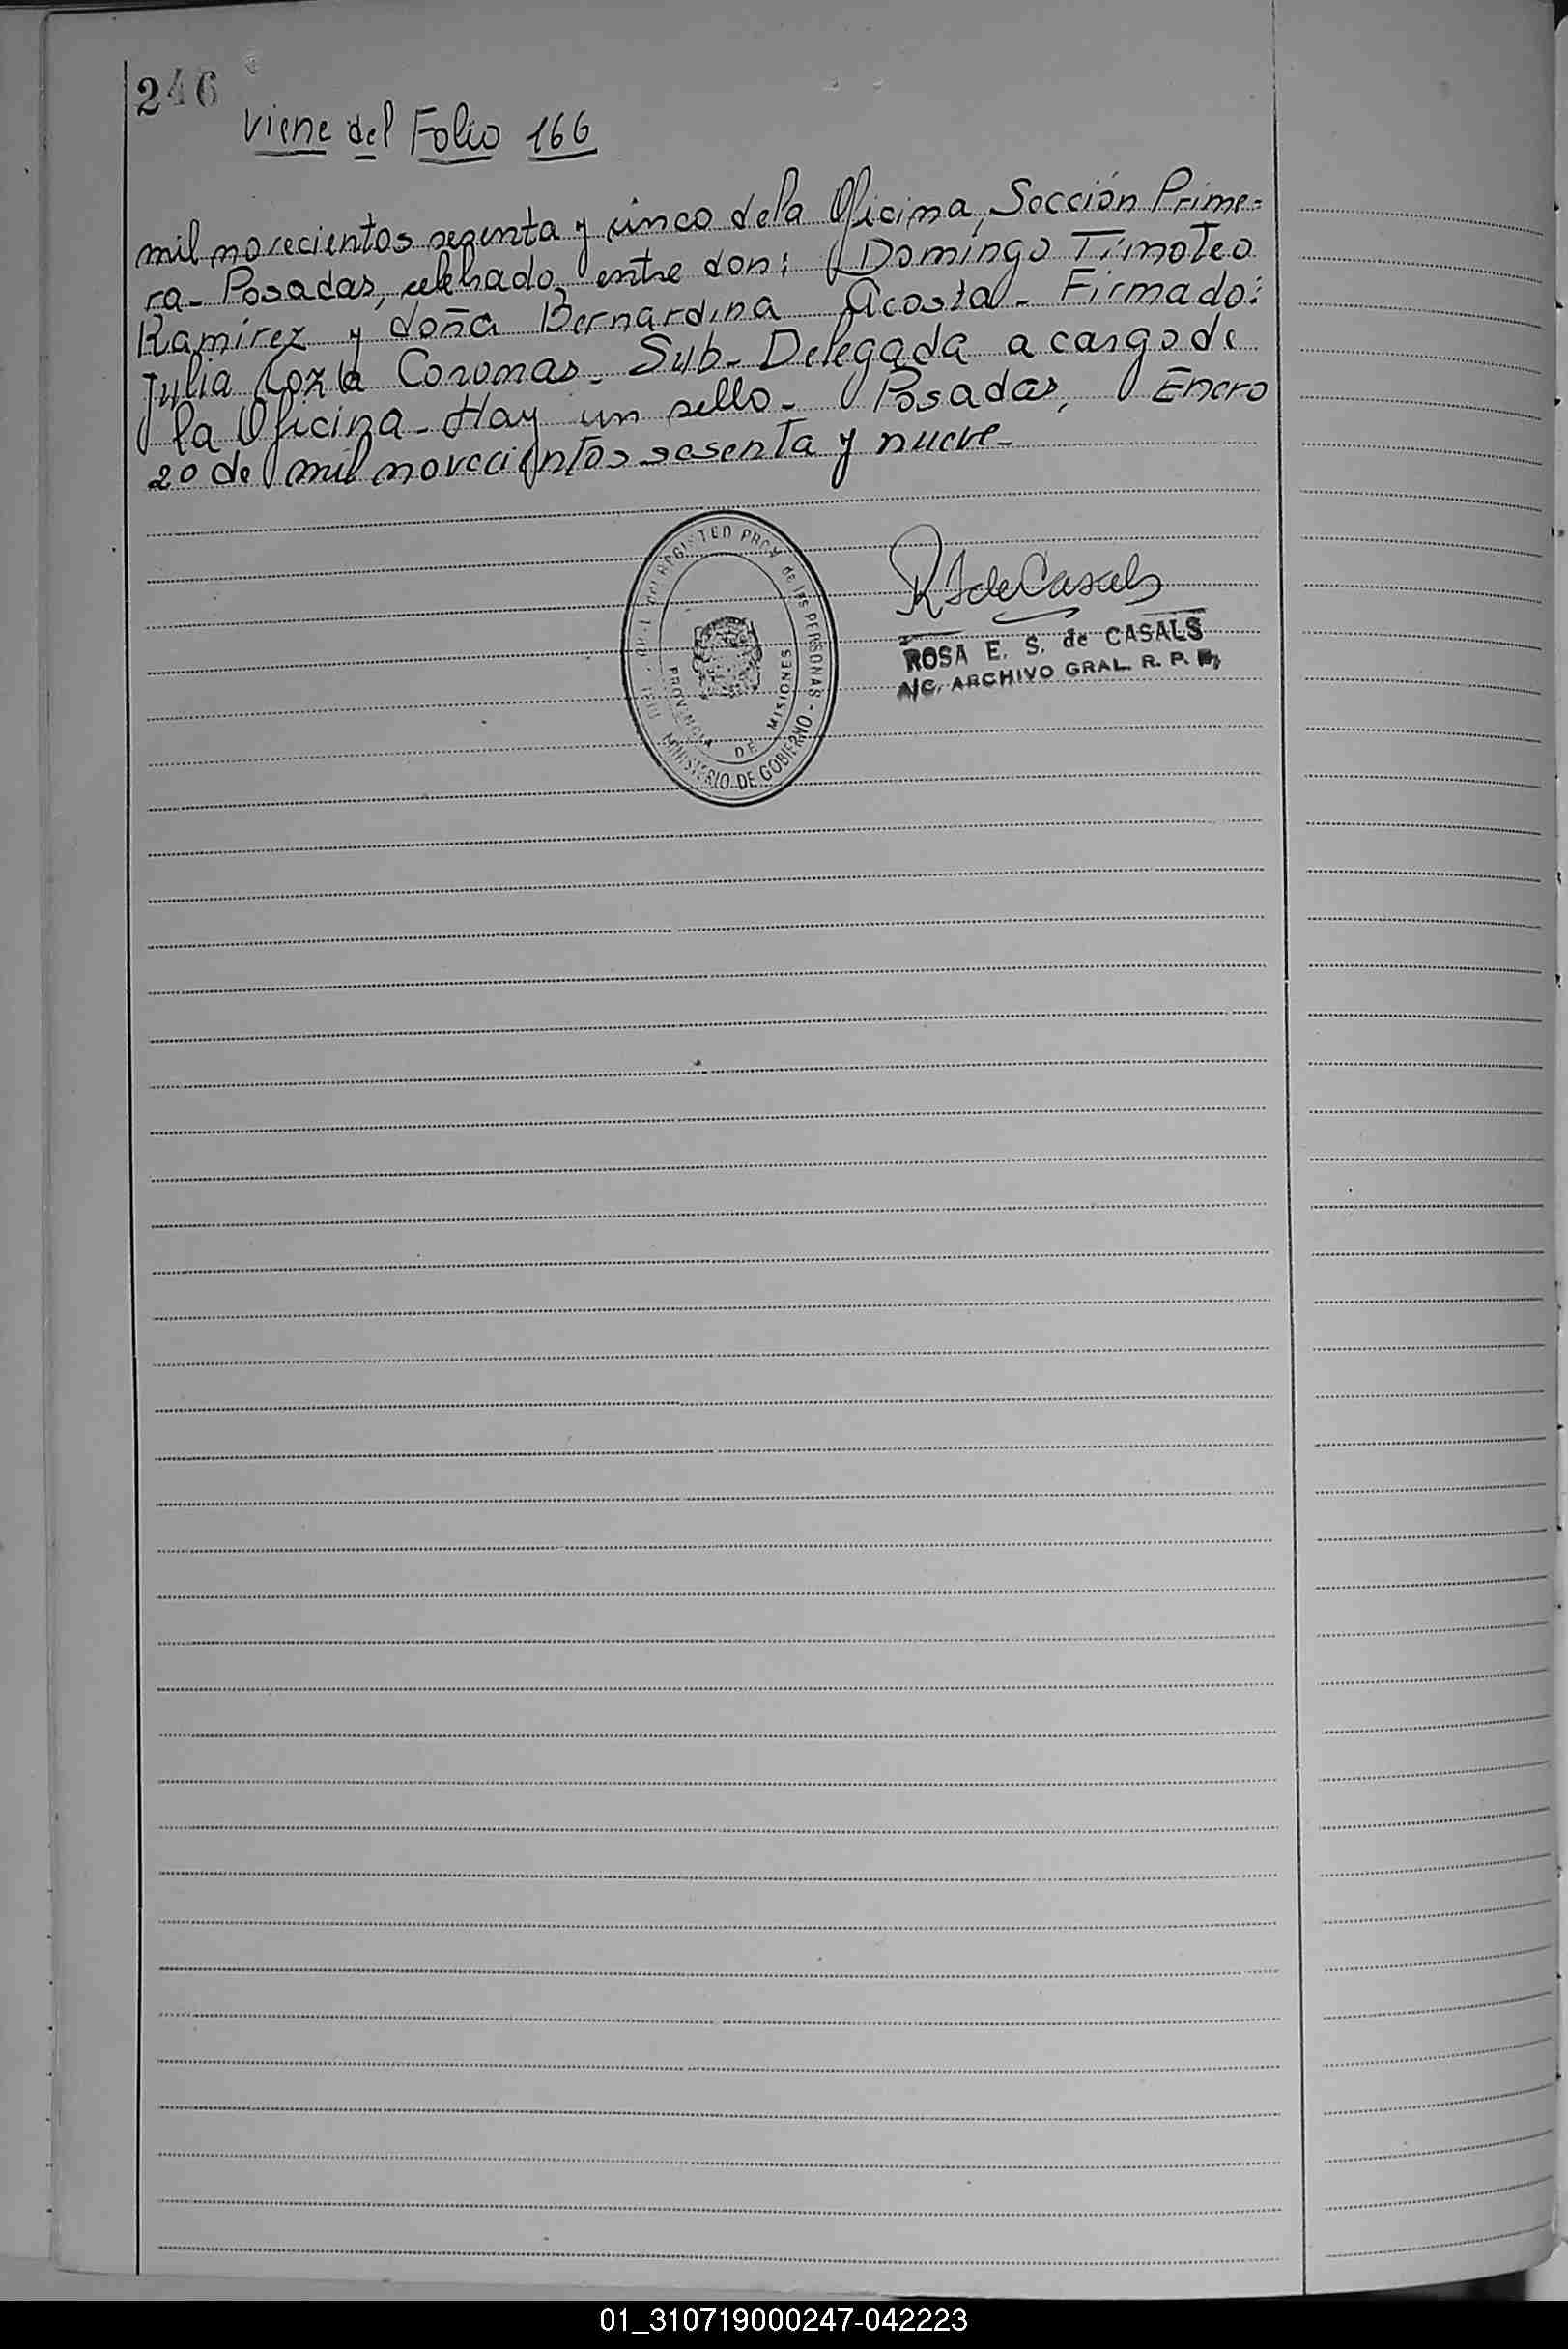 246
Viene del Folio 166
mil novecientos sesenta y cinco de la Oficina, Sección Prime-
ra- Posadas, celebrado entre don: Domingo Timoteo
Ramírez y doña Bernardina Acosta- Firmado:
Julia Coronas- Sub- Delegada a cargo de
la Oficina- Hay un sello- Posadas, Enero
20 de mil novecientos sesenta y nueve-
PROV. de las PERSONAS - MINISTERIO DE GOBIERNO
PROVINCIA DE MISIONES
R S de Casals
ROSA E. S. de CASALS
A/C. ARCHIVO GRAL. R. P.
01_310719000247-042223